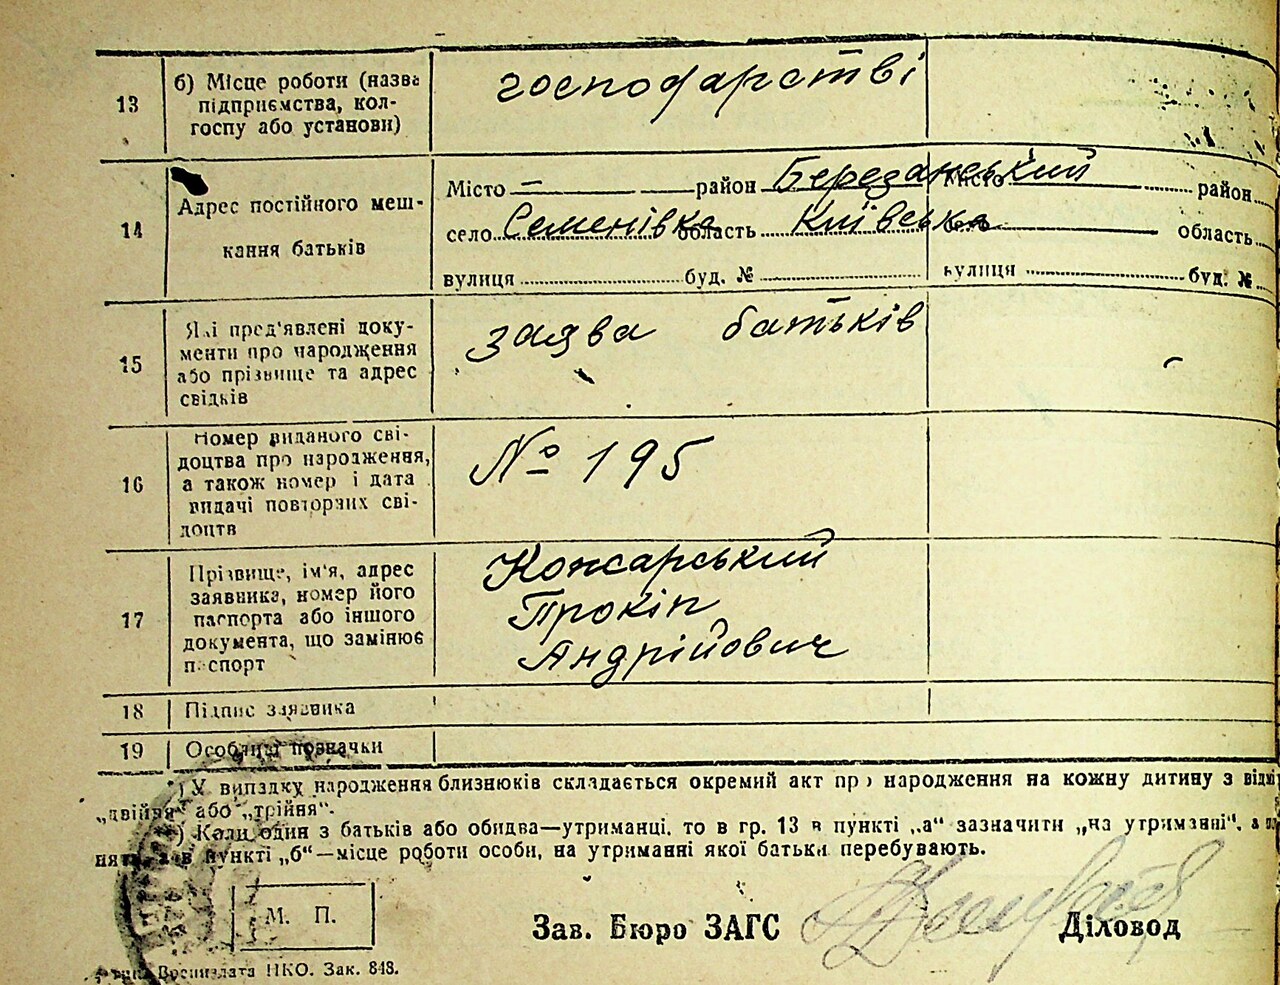 13
б) Місце роботи (назва
підприємства, кол-
госпу або установи)
господарстві
14
Адрес постійного меш-
кання батьків
Місто — район Березанський Місто район
село Семенівка область Київська село область
вулиця буд. № вулиця буд. №
15
Які пред'явлені доку-
менти про народження
або прізвище та адрес
свідків
заява батьків
16
Номер виданого сві-
доцтва про народження,
а також номер і дата
видачі повторних сві-
доцтв
№ 195
17
Прізвище, ім'я, адрес
заявника, номер його
паспорта або іншого
документа, що замінює
паспорт
Кожсарський
Прокіп
Андрійович
18 Підпис заявника
19 Особливі позначки
*) У випадку народження близнюків складається окремий акт про народження на кожну дитину з
„двійня“ або „трійня“.
Коли один з батьків або обидва—утриманці, то в гр. 13 в пункті „а“ зазначити „на утриманні“, а
в пункті „б“—місце роботи особи, на утриманні якої батьки перебувають.
М. П.
Зав. Бюро ЗАГС
Діловод
Воениздата НКО. Зак. 848.